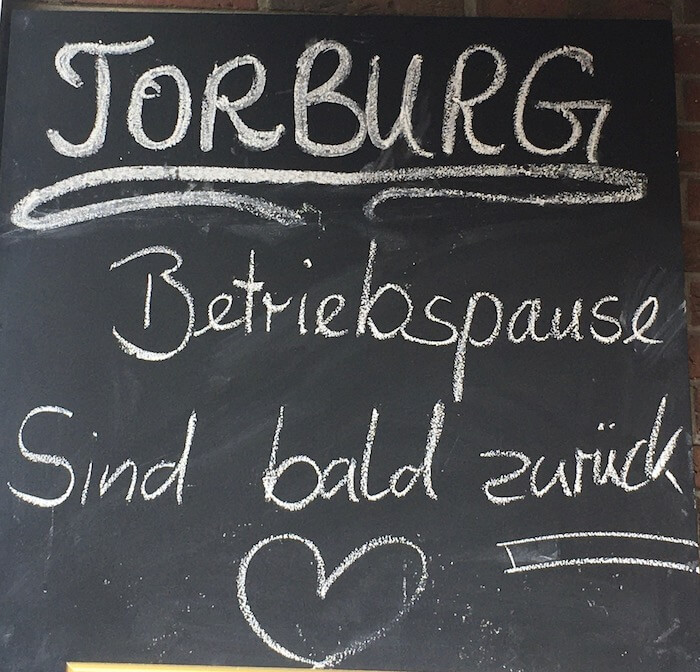 TORBURG
Betriebspause
Sind bald zurück